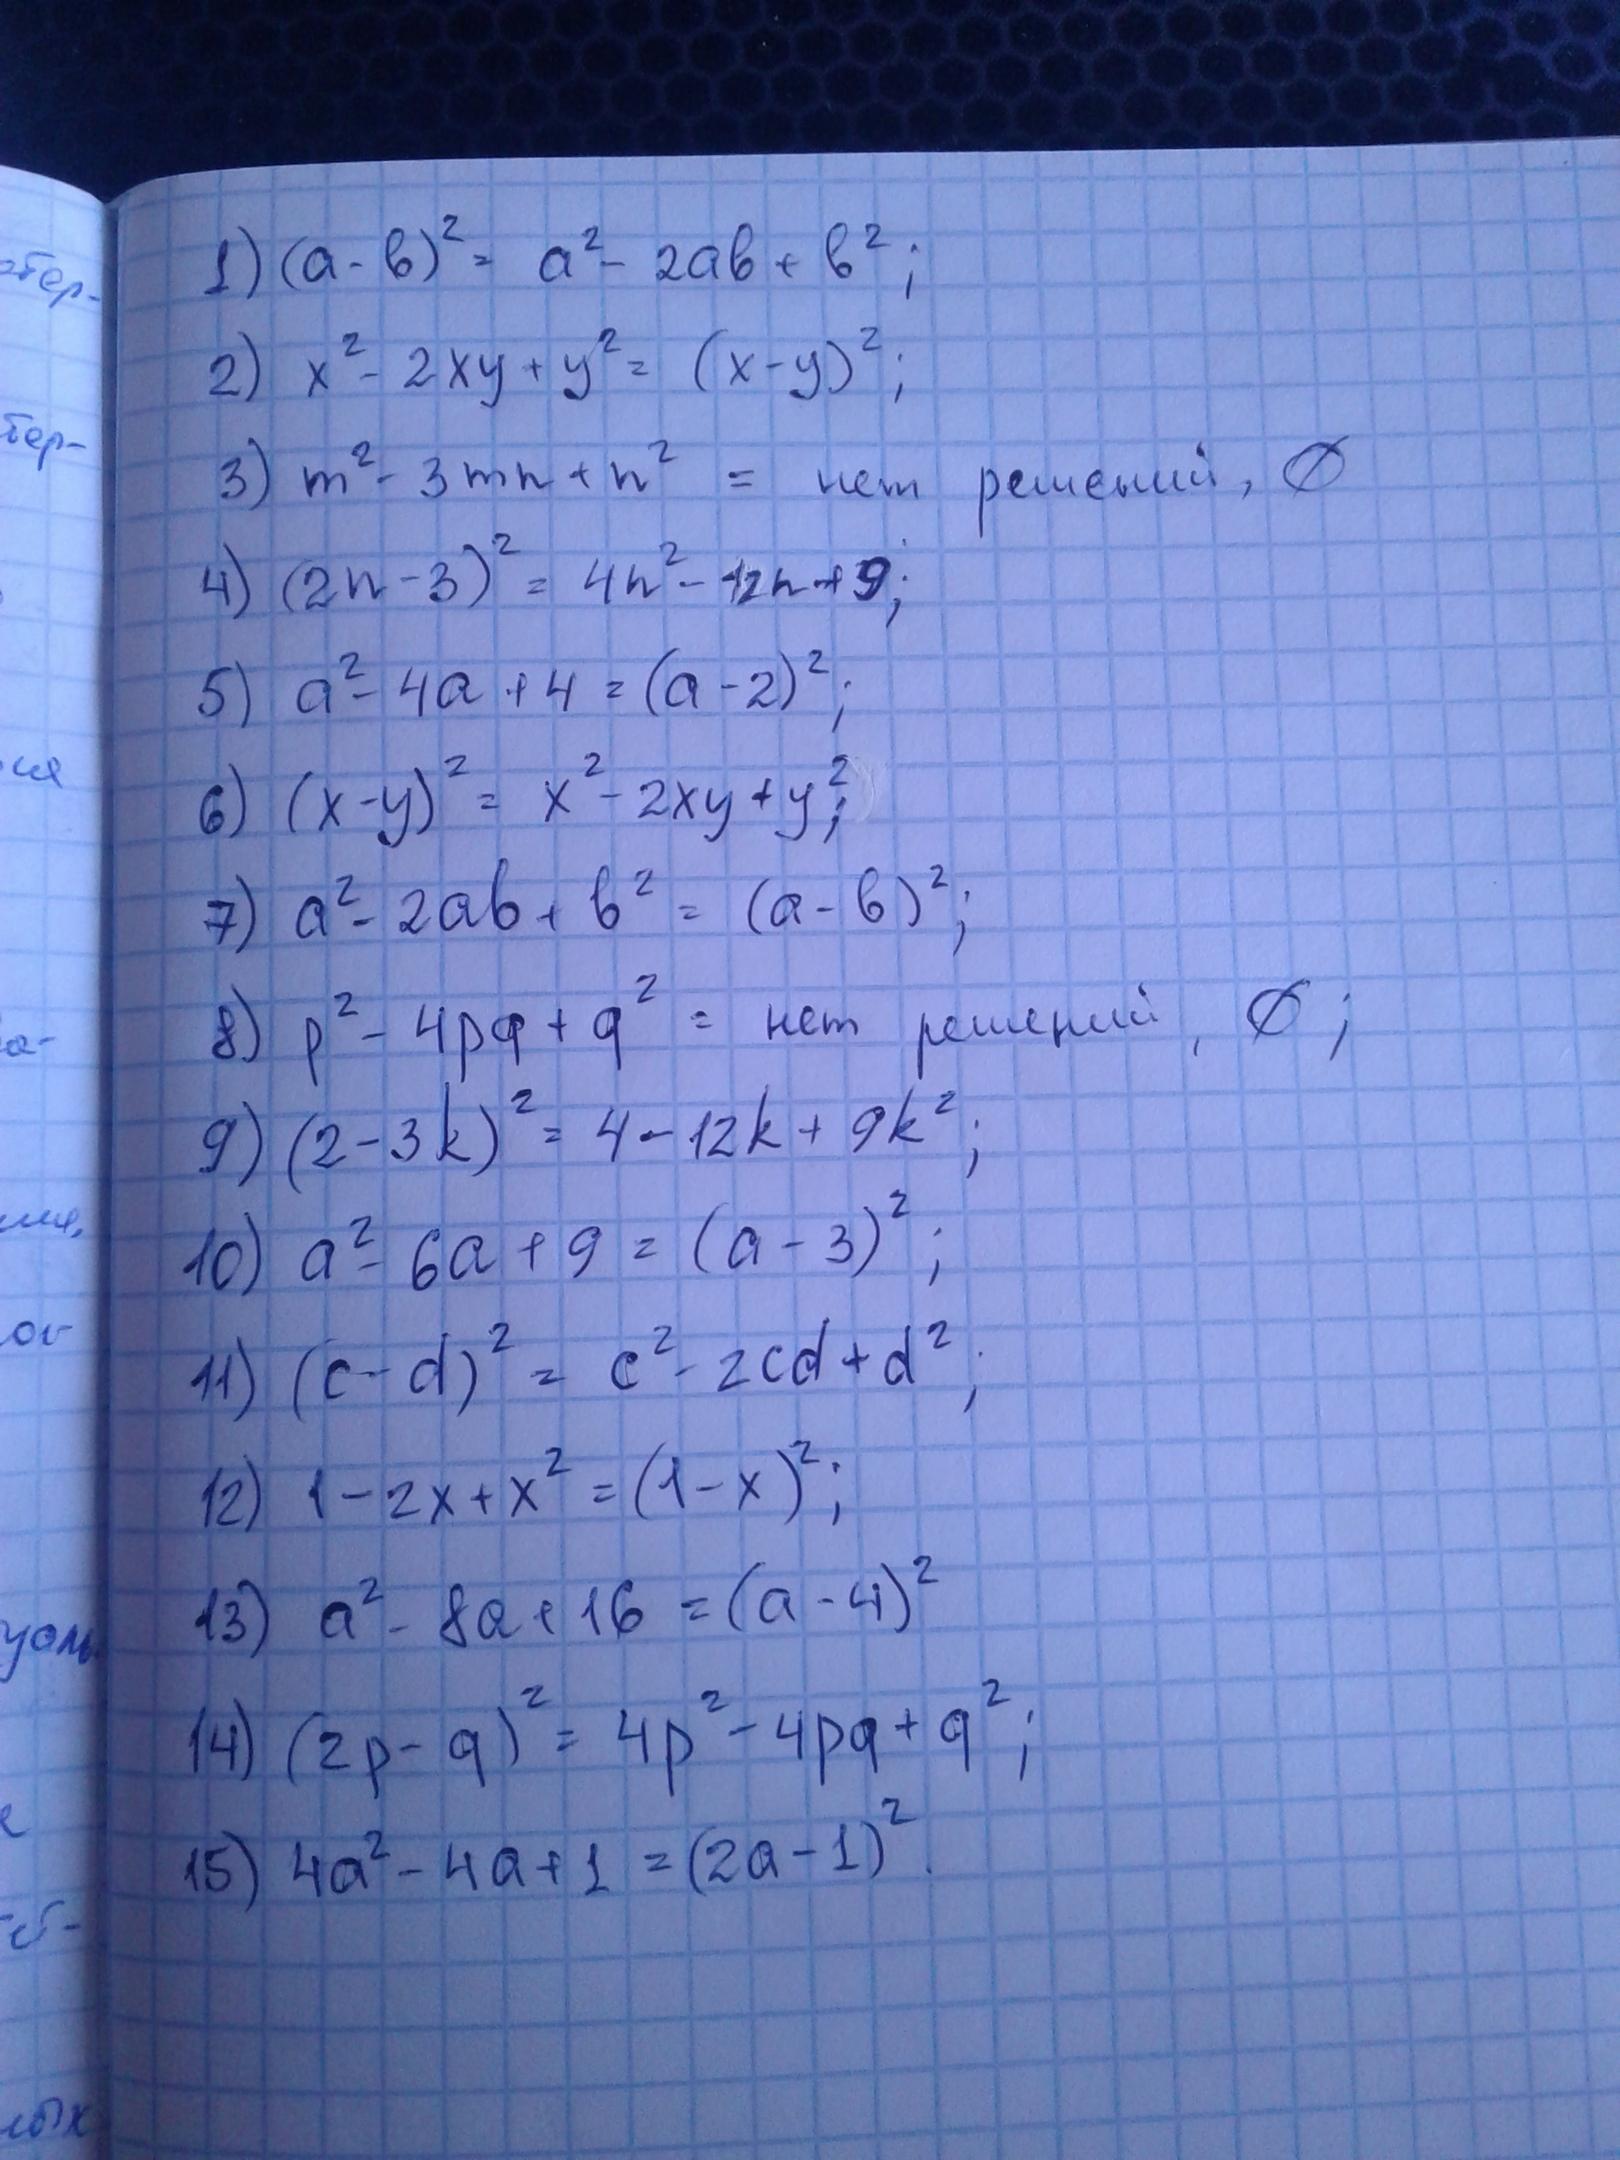 1) (а-в)²= а²- 2ав+ в²;
2) x²- 2xy+y²= (x-y)²;
3) m²- 3mn+n² = нет решений, ∅
4) (2n-3)² = 4n²- 12n+9;
5) a²- 4a+4=(a-2)²;
6) (x-y)²= x²- 2xy+y²;
7) а²- 2ав+ в² = (а-в)²;
8) p²- 4pq+q² = нет решений, ∅;
9) (2-3k)²= 4-12k+9k²;
10) a²- 6a+9=(a-3)²;
11) (c-d)² = c²- 2cd+d²;
12) 1-2x+x²=(1-x)²;
13) a²- 8a+16=(a-4)²
14) (2p-q)²= 4p²-4pq+q²;
15) 4a²-4a+1=(2a-1)².